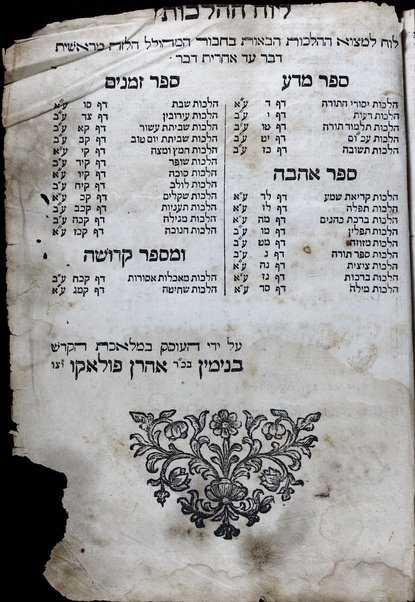 לוח ההלכות
לוח למציא ההלכות הבאות בחבור המהולל הלזה מראשית
דבר עד אחרית דבר
ספר מדע
הלכות יסודי התורה דף ד ע״א
הלכות דעות דף י ע״ב
הלכות תלמוד תורה דף טו ע״ב
הלכות עכ״ום דף יט ע״ב
הלכות תשובה דף כז ע״ב
ספר אהבה
הלכות קריאת שמע דף לד ע״א
הלכות תפלה דף לו ע״א
הלכות ברכת כהנים דף מה ע״א
הלכות תפלין דף מו ע״ב
הלכות מזוזה דף מט ע״ב
הלכות ספר תורה דף נ ע״ב
הלכות ציצית דף נה ע״א
הלכות ברכות דף נז ע״א
הלכות מילה דף סד ע״א
ספר זמנים
הלכות שבת דף סו ע״א
הלכות עירובין דף צד ע״ב
הלכות שביתת עשור דף קא ע״ב
הלכות שביתת יום טוב דף קב ע״ב
הלכות חמץ ומצה דף קי ע״א
הלכות שופר דף קיד ע״ב
הלכות סוכה דף קיו ע״א
הלכות לולב דף קיח ע״ב
הלכות שקלים דף קכ ע״א
הלכות תעניות דף קכב ע״ב
הלכות מגילה דף קכה ע״ב
הלכות חנוכה דף קכז ע״א
ומספר קדושה
הלכות מאכלות אסורות דף קכח ע״ב
הלכות שחיטה דף קמג ע״א
על ידי העוסק במלאכת הקדש
בנימין בכ״ר אהרן פולאקו יצו